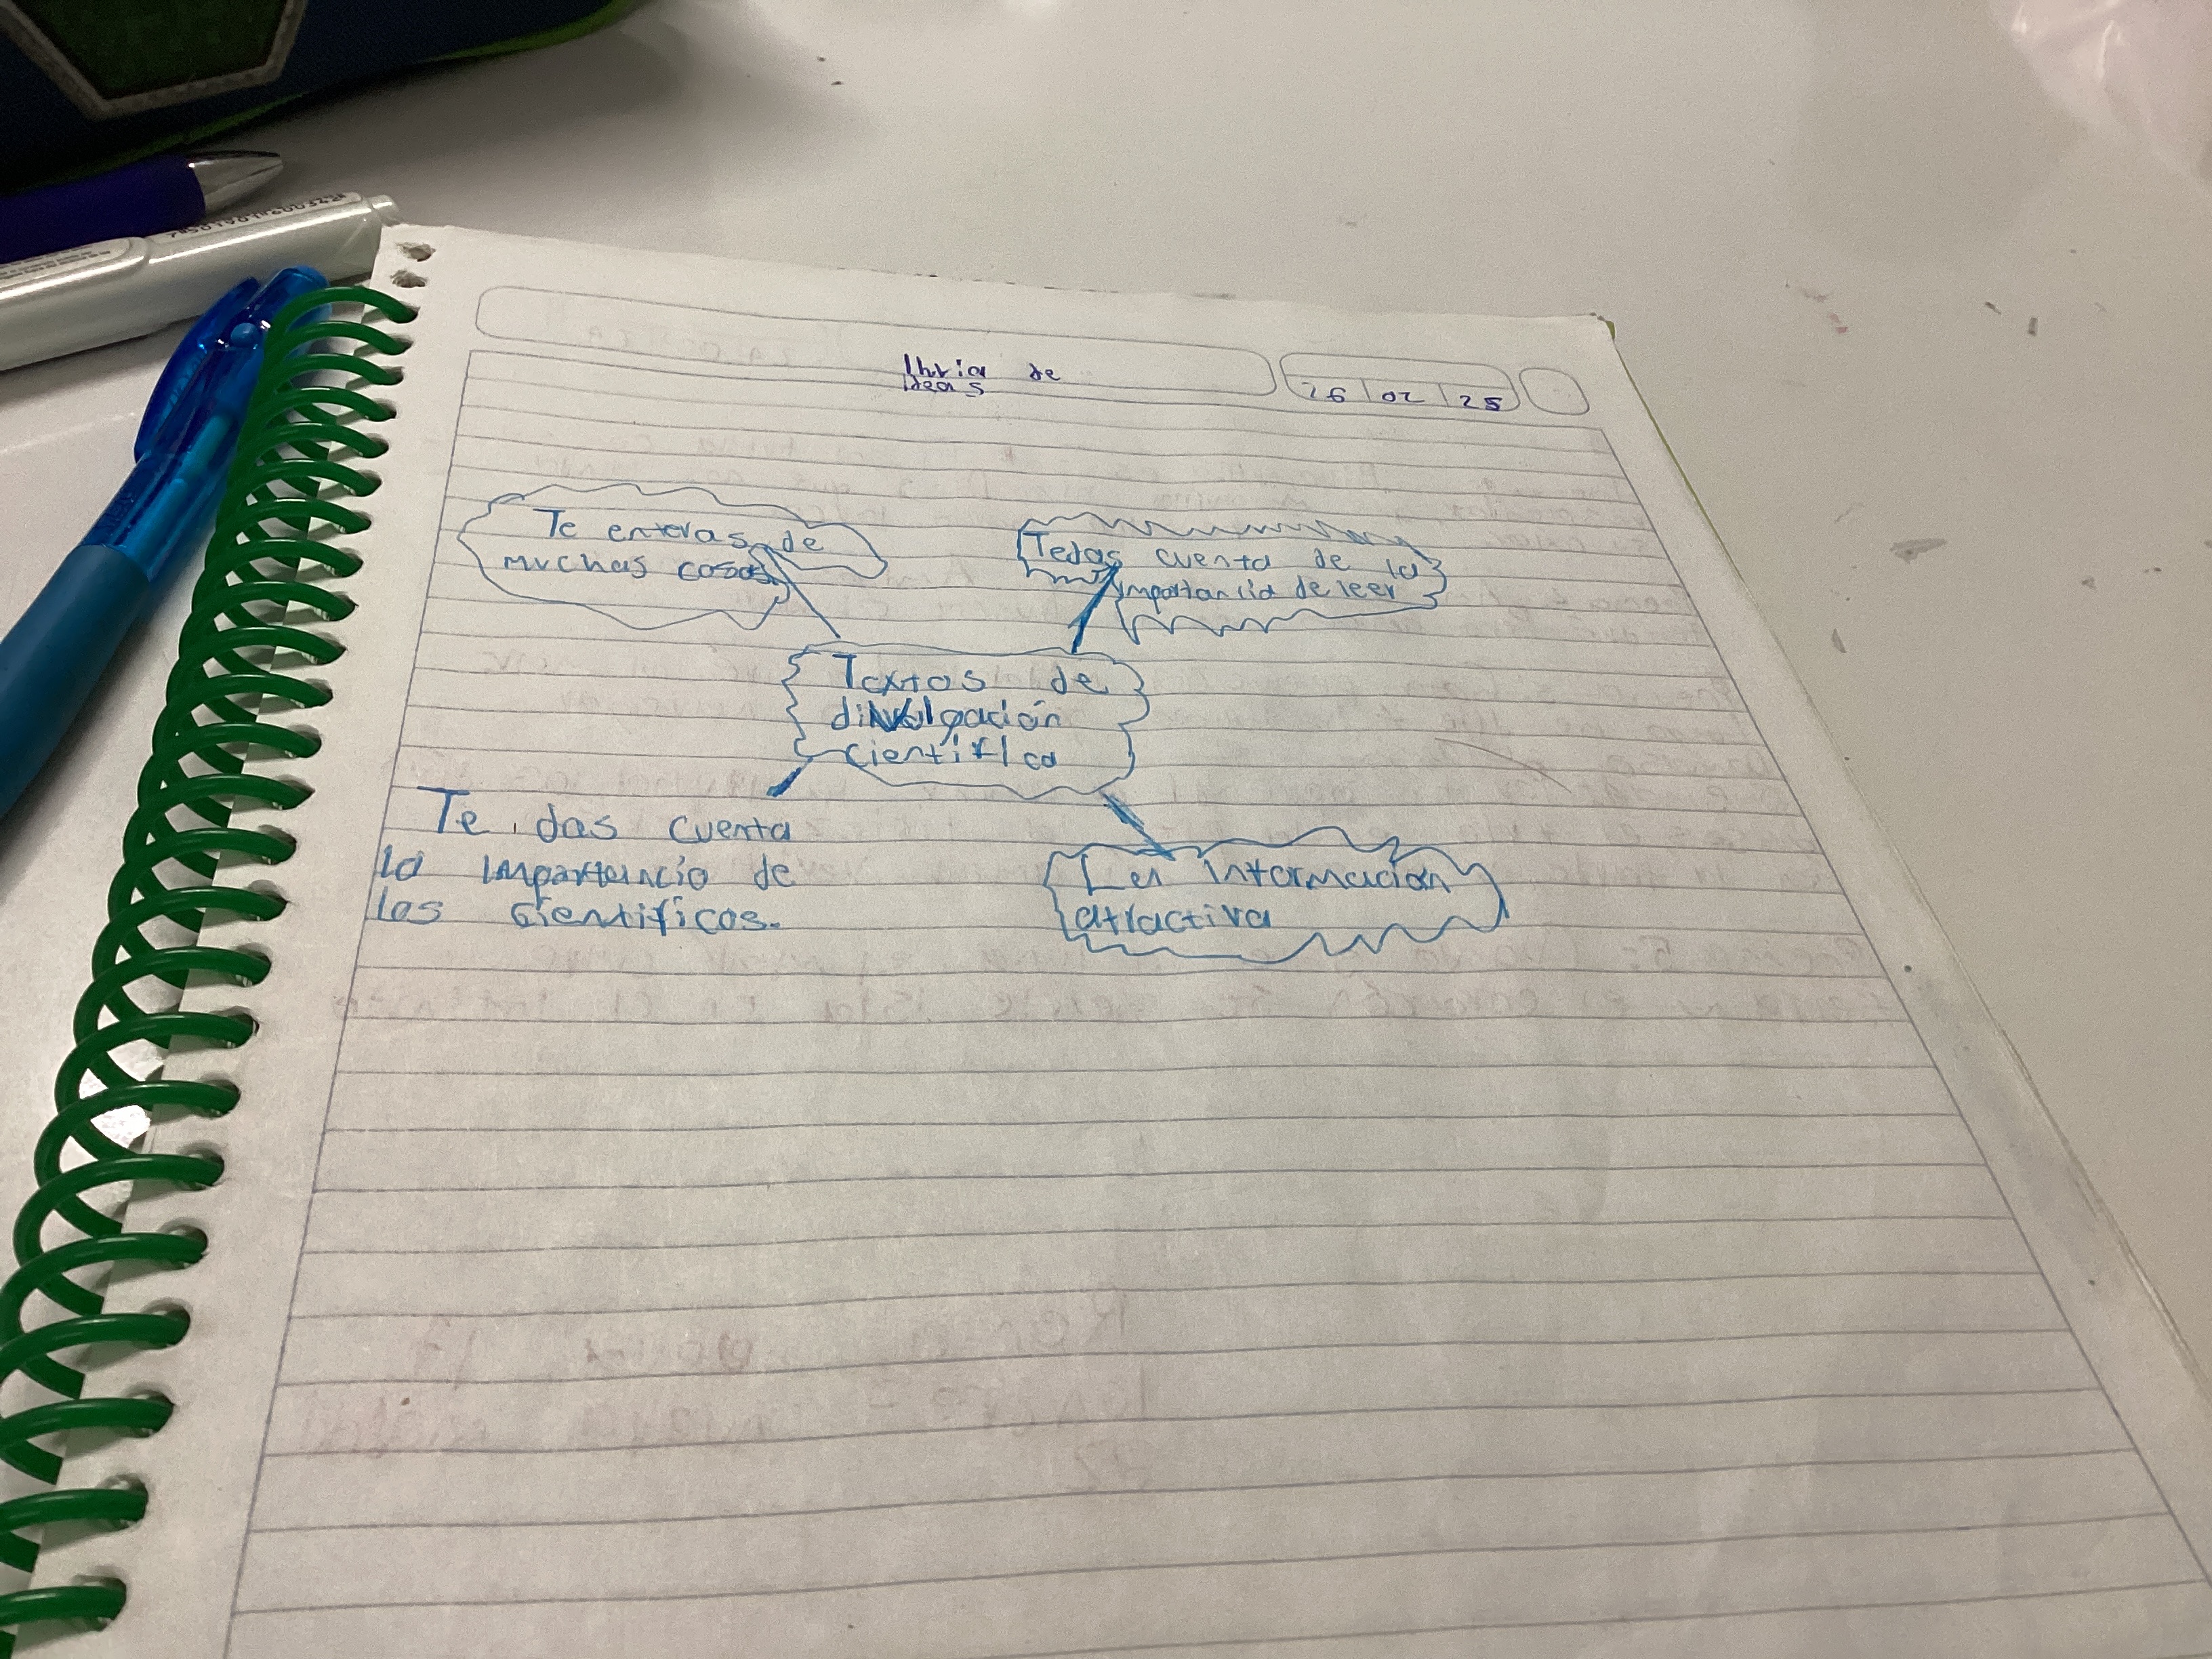 lluvia de
Ideas
26 | 02 | 25
Te enteras de
muchas cosas
Te das cuenta de la
importancia de leer
Textos de
divulgación
cientifica
Te das cuenta
la importancia de
los cientificos.
La información
atractiva